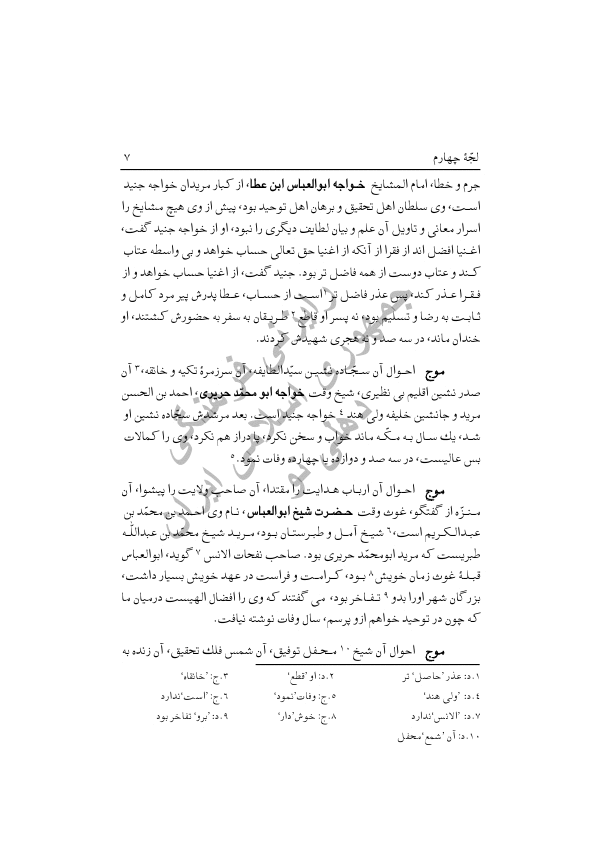 لجّهٔ چهارم ۷
جرم و خطا، امام المشایخ خـواجه ابوالعباس ابن عطا، از کبار مریدان خواجه جنید
است، وی سلطان اهل تحقیق و برهان اهل توحید بود، پیش از وی هیچ مشایخ را
اسرار معانی و تاویل آن علم و بیان لطایف دیگری را نبود، او از خواجه جنید گفت،
اغـنیا افضل اند از فقرا از آنکه از اغنیا حق تعالی حساب خواهد و بی واسطه عتاب
کـند و عتاب دوست از همه فاضل تر بود. جنید گفت، از اغنیا حساب خواهد و از
فـقـرا عـذر کند، پس عذر فاضل تر۱ است از حسـاب، عـطا پدرش پیر مرد کامل و
ثـابـت به رضا و تسلیم بود، نه پسر او قاطع۲ طریـقان به سفر به حضورش کشتند، او
خندان ماند، در سه صد و نه هجری شهیدش کردند.
موج احـوال آن سجّـاده نشیـن سیّدالطایفه، آن سرزمرهٔ تکیه و خانقه،۳ آن
صدر نشین اقلیم بی نظیری، شیخ وقت خواجه ابو محمّد حریری، احمد بن الحسن
مرید و جانشین خلیفه ولی هند۴ خواجه جنید است. بعد مرشدش سجّاده نشین او
شـد، یك سـال بـه مـکّـه ماند خواب و سخن نکرد، پا دراز هم نکرد، وی را کمالات
بس عالیست، در سه صد و دوازده یا چهارده وفات نمود.۵
موج احـوال آن اربـاب هـدایت را مقتدا، آن صاحب ولایت را پیشوا، آن
مـنـزّه از گفتگو، غوث وقت حـضـرت شیخ ابوالعباس، نـام وی احـمد بن محمّد بن
عبـدالـکریم است،۶ شیـخ آمـل و طبـرستـان بـود، مـریـد شیـخ محمّد بن عبداللّٰـه
طبریست که مرید ابومحمّد حریری بود. صاحب نفحات الانس۷ گوید، ابوالعباس
قبلـهٔ غوث زمان خویش۸ بـود، کـرامـت و فراست در عهد خویش بسیار داشت،
بزرگان شهر اورا بدو۹ تـفـاخر بود، می گفتند که وی را افضال الهیست درمیان ما
که چون در توحید خواهم ازو پرسم، سال وفات نوشته نیافت.
موج احوال آن شیخ۱۰ مـحـفل توفیق، آن شمس فلك تحقیق، آن زنده به
۱.د: عذر ’حاصل‘ تر ۲.د: او ’قطع‘ ۳.ج: ’خانقاه‘
۴.د: ’ولی هند‘ ۵.ج: وفات ’نمود‘ ۶.ج: ’است‘ ندارد
۷.د: ’الانس‘ ندارد ۸.ج: خوش ’دار‘ ۹.د: ’برو‘ تفاخر بود
۱۰.د: آن ’شمع‘ محفل
رایزنی فرهنگی
جمهوری اسلامی ایران
دهلی نو